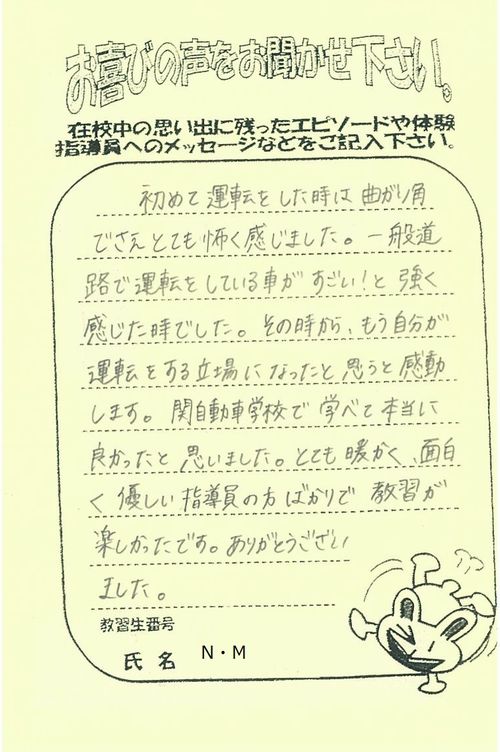 お喜びの声をお聞かせ下さい。
在校中の思い出に残ったエピソードや体験
指導員へのメッセージなどをご記入下さい。
初めて運転をした時は曲がり角
でさえとても怖く感じました。一般道
路で運転をしている車がすごい！と強く
感じた時でした。その時から、もう自分が
運転をする立場になったと思うと感動
します。関自動車学校で学べて本当に
良かったと思いました。とても暖かく、面白
く優しい指導員の方ばかりで教習が
楽しかったです。ありがとうござい
ました。
教習生番号
氏名 N・M